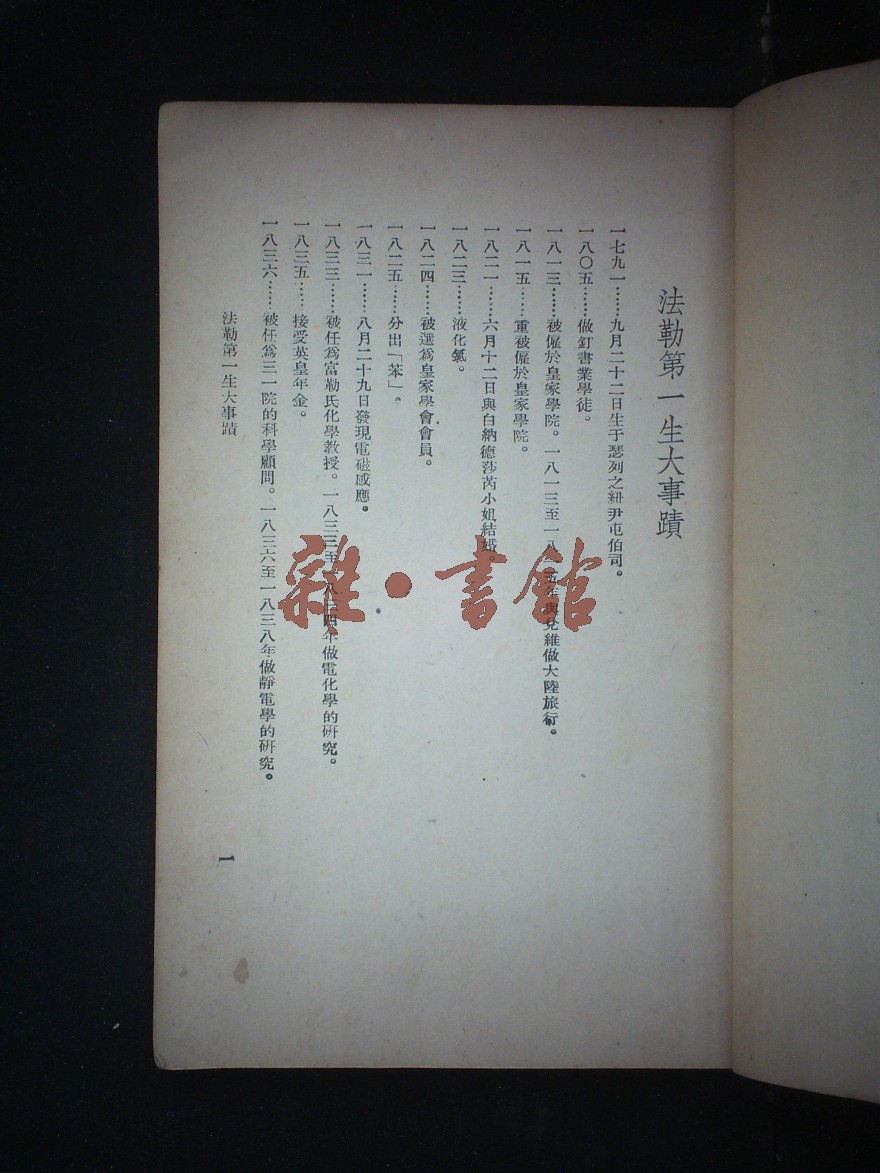 法勒第一生大事蹟
一七九一……九月二十二日生于瑟列之紐尹屯伯司。
一八〇五……做釘書業學徒。
一八一三……被僱於皇家學院。一八一三至一八一五年與兌維做大陸旅行。
一八一五……重被僱於皇家學院。
一八二一……六月十二日與白納德莎芮小姐結婚。
一八二三……液化氯。
一八二四……被選為皇家學會會員。
一八二五……分出「苯」。
一八三一……八月二十九日發現電磁感應。
一八三三……被任為富勒氏化學教授。一八三三至一八三四年做電化學的研究。
一八三五……接受英皇年金。
一八三六……被任為三一院的科學顧問。一八三六至一八三八年做靜電學的研究。
法勒第一生大事蹟
一
雜·書館